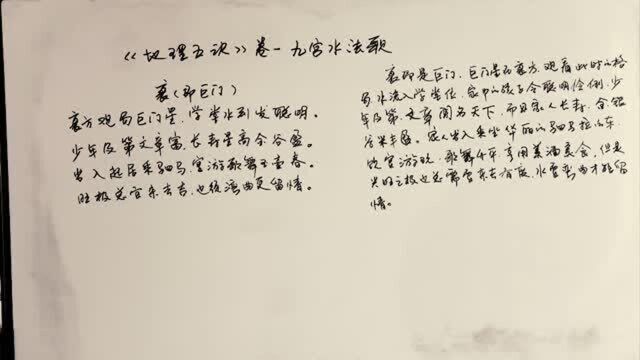 《地理五诀》卷一九宫水法歌
衰(即巨门)
衰方观局巨门星,学堂水到发聪明。
少年及第文章富,长寿星高余谷盈。
出入起居乘驷马,宦游歌舞玉青春。
旺极总宜来去吉,也须湾曲更留情。
衰即是巨门,巨门星在衰方,观看此时的格
局水流入学堂位,家中的孩子会聪明伶俐,少
年及第,文章闻名天下,而且家人长寿,金银
谷米丰盈。家人出入乘坐华丽的驷马拉的车,
官宦游玩,歌舞升平,享用美酒美食,但是
兴旺之极也总需宜来去有度,水宜弯曲才能留
情。